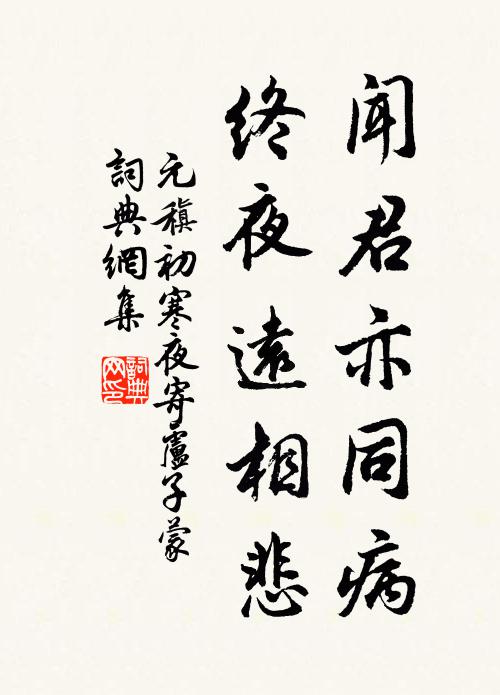 聞君亦同病
終夜遠相悲
元稹初寒夜寄盧子蒙
詞典網集
詞典網印